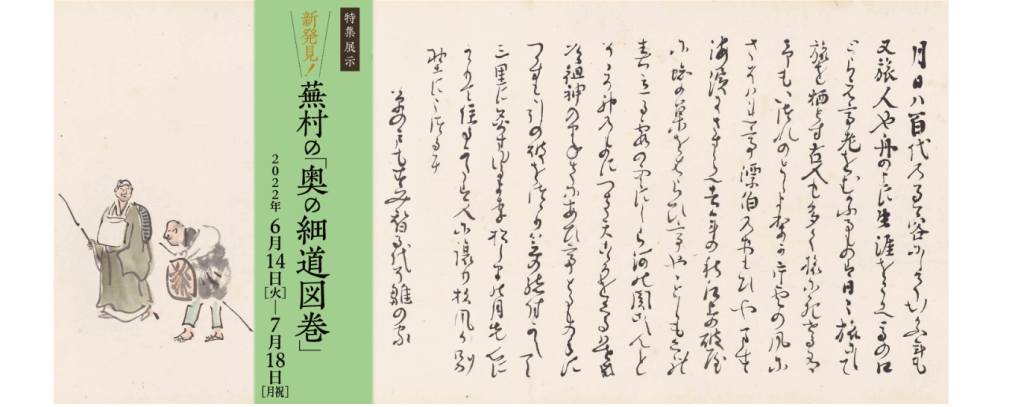 月日ハ百代の過客にして行かふ年も
又旅人也舟の上に生涯をうかへ馬の口
とらえて老をむかふるものは日々旅にして
旅を栖とす古人も多く旅に死せるあり
予もいつれのとしよりか片雲の風に
さそはれて漂泊のおもひやます
海濱にさすらへ去年の秋江上の破屋
に蜘の巣をはらひてやゝとしも暮
春立る霞の空にしら河の関こえんと
そゝろ神のものにつきて心をくるはせ
道祖神のまねきにあひてとるもの手に
つかすもゝ引の破をつゝり笠の緒付かえて
三里に灸すゆるより松しまの月先心に
かゝりて住る方は人に譲り杉風か別
墅にうつるに
草の戸も住替る代そ雛の家
特集展示
新発見!
蕪村の「奥の細道図巻」
2022年6月14日[火]―7月18日[月祝]